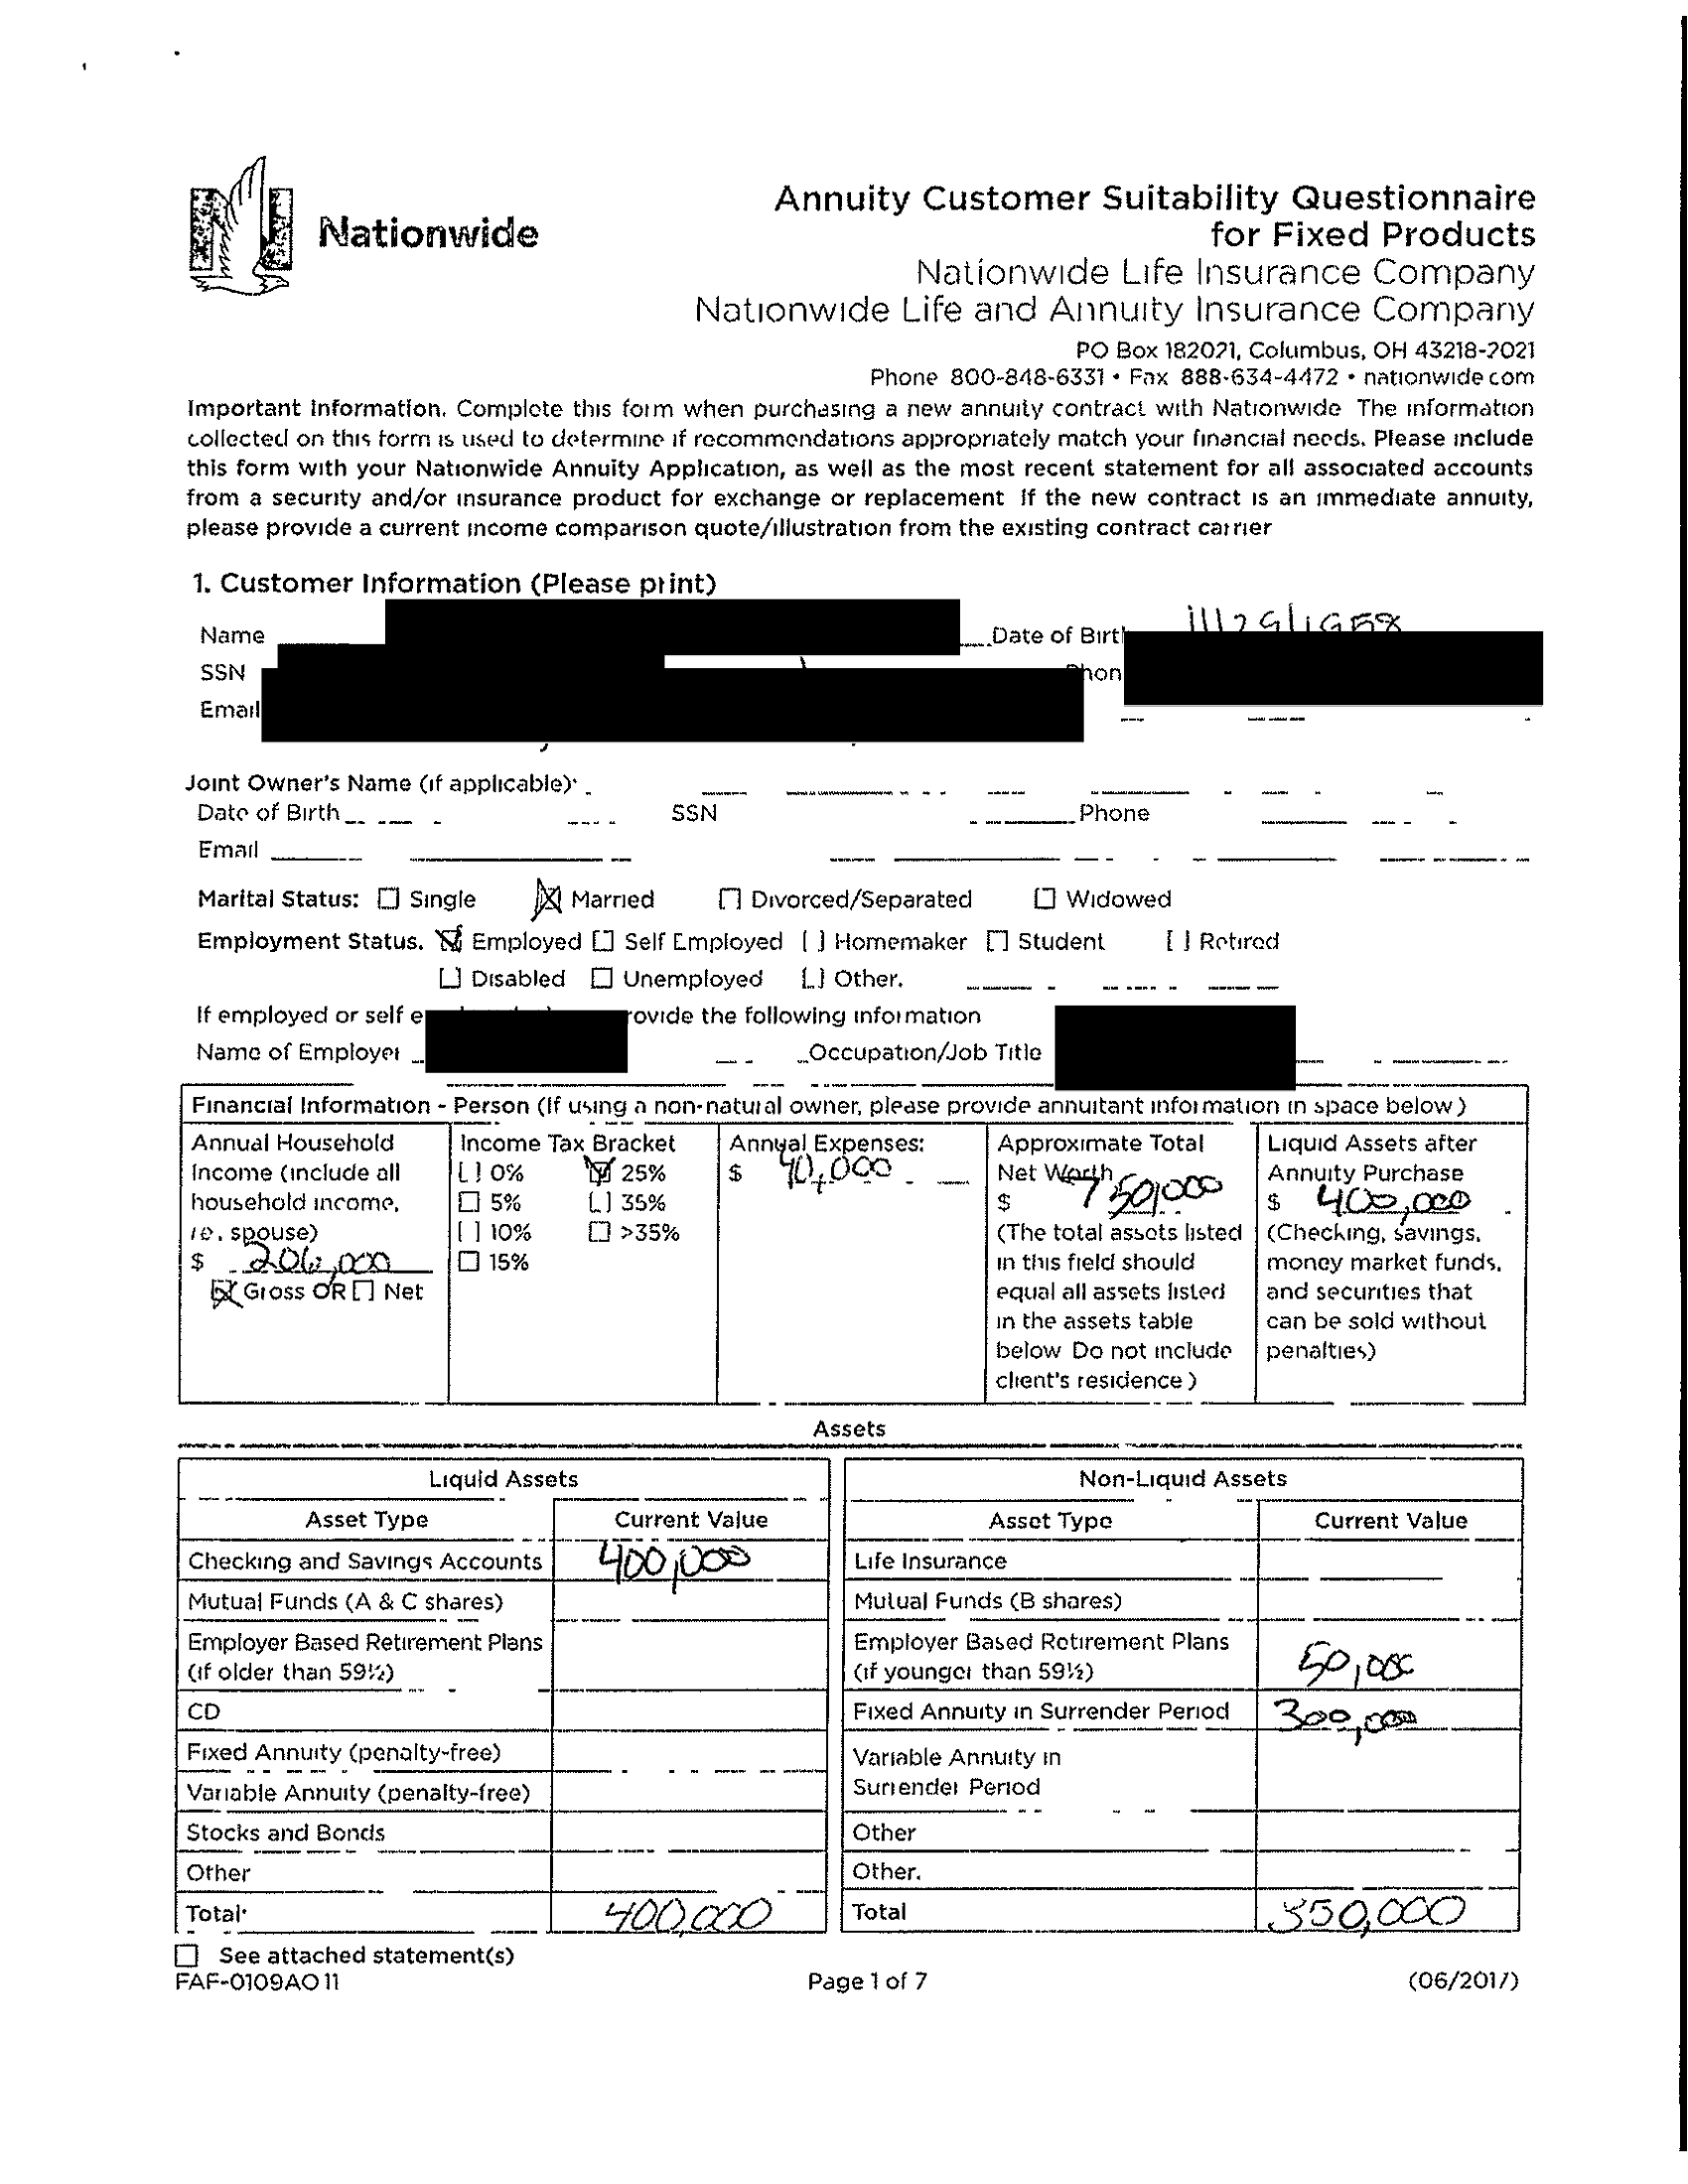 Nationwide
Annuity Customer Suitability Questionnaire
for Fixed Products
Nationwide Life Insurance Company
Nationwide Life and Annuity Insurance Company
PO Box 182021, Columbus, OH 43218-2021
Phone 800-848-6331 • Fax 888-634-4472 • nationwide com
Important Information. Complete this form when purchasing a new annuity contract with Nationwide The information
collected on this form is used to determine if recommendations appropriately match your financial needs. Please include
this form with your Nationwide Annuity Application, as well as the most recent statement for all associated accounts
from a security and/or insurance product for exchange or replacement If the new contract is an immediate annuity,
please provide a current income comparison quote/illustration from the existing contract carrier
1. Customer Information (Please print)
Name Date of Birth
SSN Phon
Email
Joint Owner's Name (if applicable)
Date of Birth SSN Phone
Email
Marital Status: Single Married Divorced/Separated Widowed
Employment Status. Employed Self Employed Homemaker Student Retired
Disabled Unemployed Other.
If employed or self e rovide the following information
Name of Employer Occupation/Job Title
Financial Information - Person (If using a non-natural owner, please provide annuitant information in space below)
Annual Household Income (include all household income, ie. spouse)
$ 206,000
Gross OR Net
Income Tax Bracket
0% 25%
5% 35%
10% >35%
15%
Annual Expenses:
$ 40,000
Approximate Total
Net Worth
$ 750,000
(The total assets listed
in this field should
equal all assets listed
in the assets table
below Do not include
client's residence)
Liquid Assets after
Annuity Purchase
$ 400,000
(Checking, savings,
money market funds,
and securities that
can be sold without
penalties)
Assets
Liquid Assets
Asset Type Current Value
Checking and Savings Accounts 400,000
Mutual Funds (A & C shares)
Employer Based Retirement Plans
(if older than 59½)
CD
Fixed Annuity (penalty-free)
Variable Annuity (penalty-free)
Stocks and Bonds
Other
Total 400,000
Non-Liquid Assets
Asset Type Current Value
Life Insurance
Mutual Funds (B shares)
Employer Based Retirement Plans
(if younger than 59½) 50,000
Fixed Annuity in Surrender Period 300,000
Variable Annuity in
Surrender Period
Other
Other.
Total 350,000
See attached statement(s)
FAF-0109AO 11 Page 1 of 7 (06/2017)